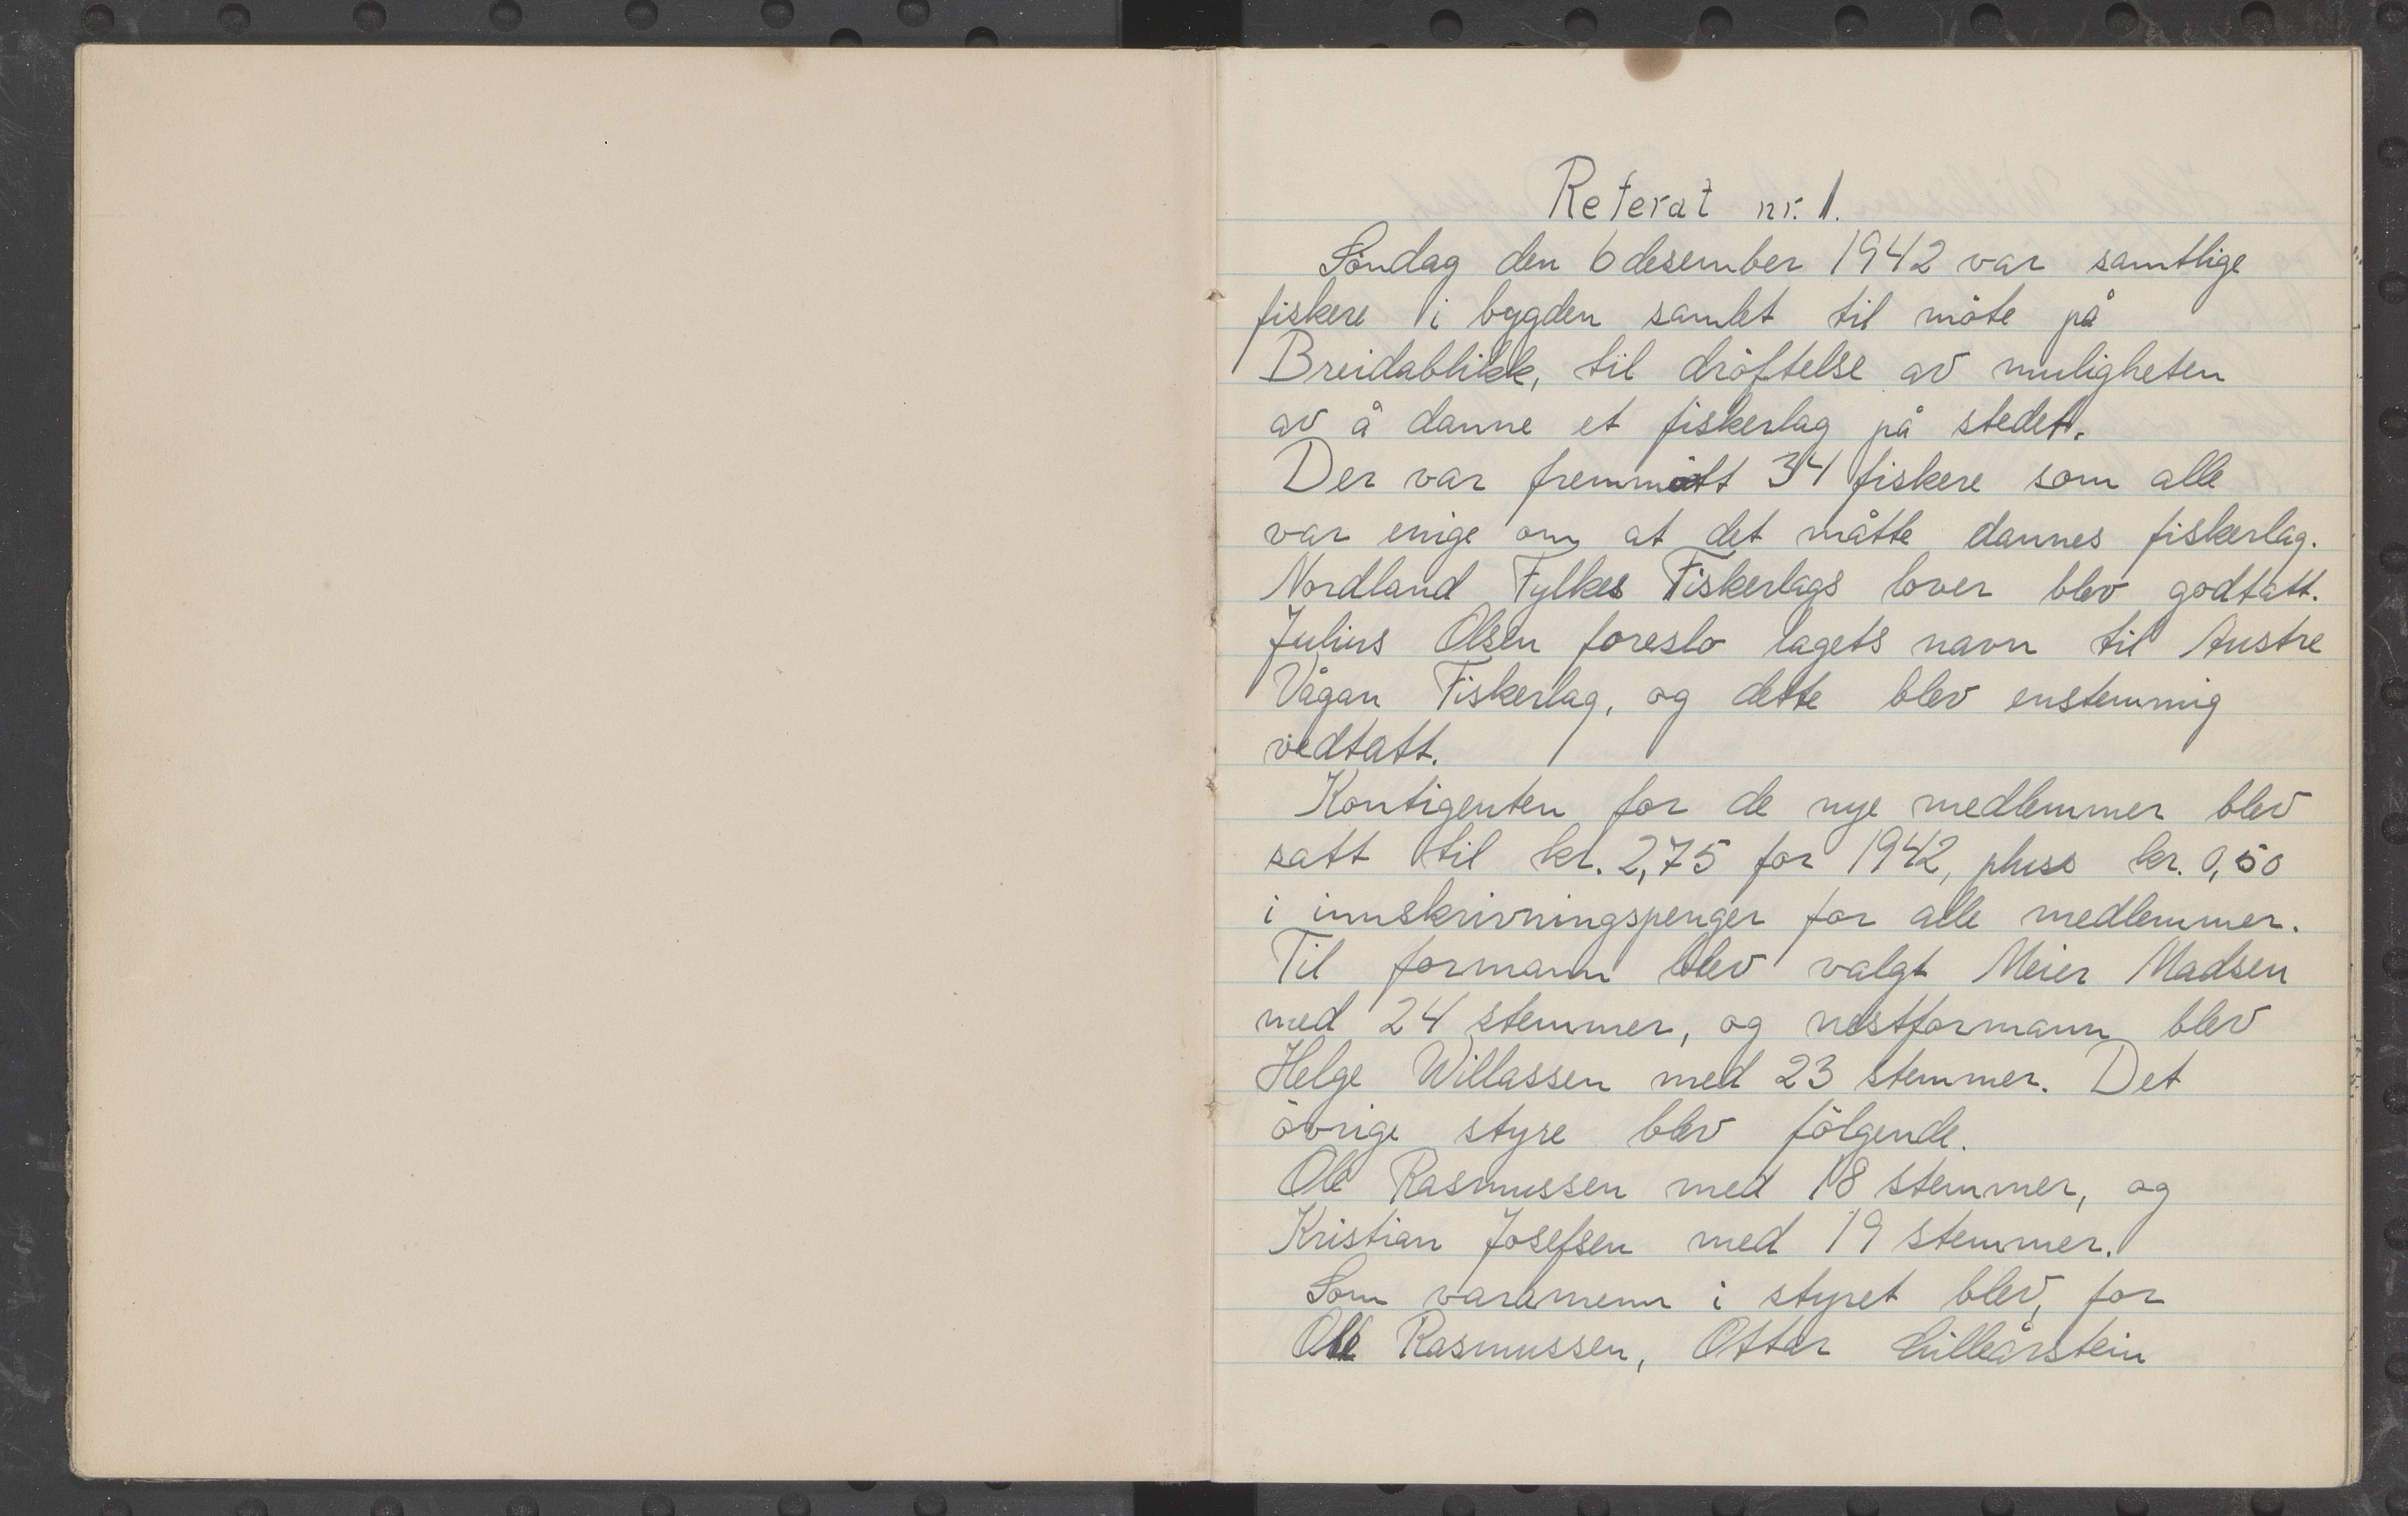 Referat nr. 1.
Søndag den 6 desember 1942 var samtlige
fiskere i bygden samlet til møte på
Breidablikk, til drøftelse av muligheten
av å danne et fiskerlag på stedet.
Der var fremmøtt 34 fiskere som alle
var enige om at det måtte dannes fiskerlag.
Nordland Fylkes Fiskerlags lover blev godtatt.
Julius Olsen foreslo lagets navn til Austre
Vågan Fiskerlag, og dette blev enstemmig
vedtatt.
Kontigenten for de nye medlemmer blev
satt til kr. 2,75 for 1942, pluss kr. 0,50
i innskrivningspenger for alle medlemmer.
Til formann blev valgt Meier Madsen
med 24 stemmer, og nestformann blev
Helge Willassen med 23 stemmer. Det
øvrige styre blev følgende.
Ole Rasmussen med 18 stemmer, og
Kristian Josefsen med 19 stemmer.
Som varamenn i styret blev, for
Ole Rasmussen, Ottar Lilleårstein